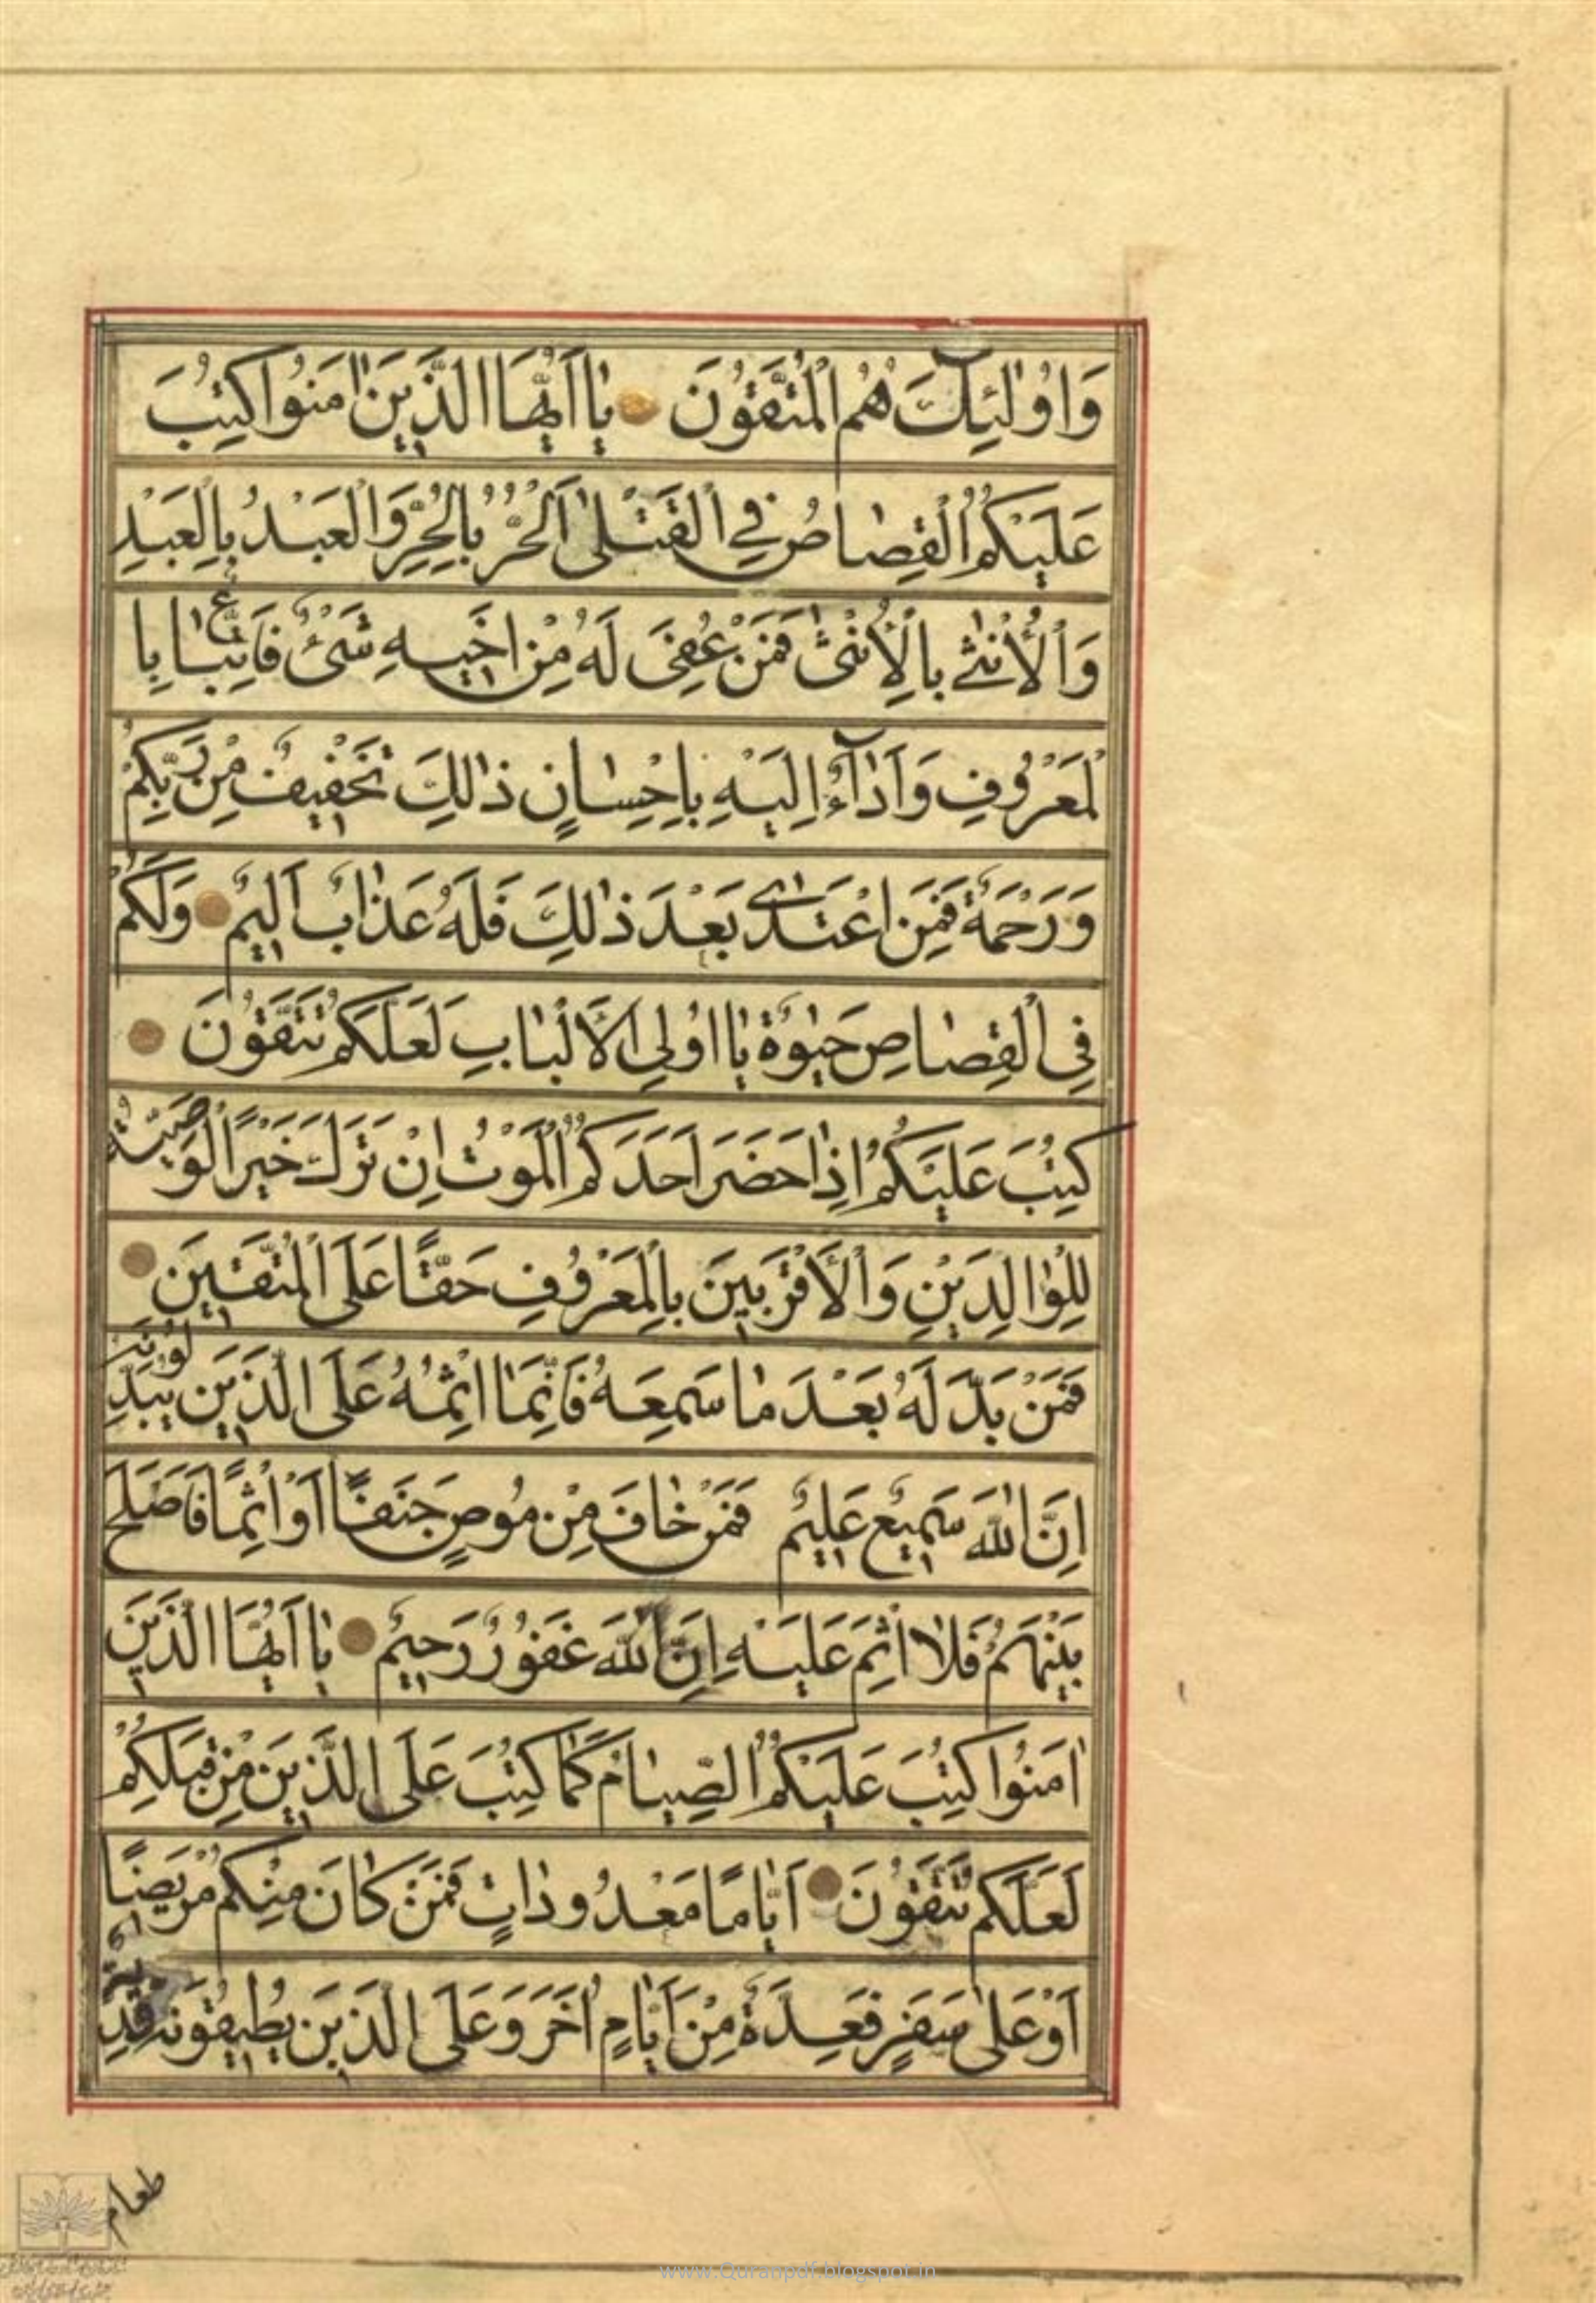 وَاُولٰئِكَ هُمُ الْمُتَّقُونَ يٰا اَيُّهَا الَّذِينَ اٰمَنُوا كُتِبَ
عَلَيْكُمُ الْقِصٰاصُ فِي الْقَتْلىٰ اَلْحُرُّ بِالْحُرِّ وَالْعَبْدُ بِالْعَبْدِ
وَالْاُنْثٰى بِالْاُنْثٰى فَمَنْ عُفِىَ لَهُ مِنْ اَخِيهِ شَىْءٌ فَاتِّبٰاعٌ بِا
لْمَعْرُوفِ وَاَدٰاۤءٌ اِلَيْهِ بِاِحْسٰانٍ ذٰلِكَ تَخْفِيفٌ مِنْ رَبِّكُمْ
وَرَحْمَةٌ فَمَنِ اعْتَدٰى بَعْدَ ذٰلِكَ فَلَهُ عَذٰابٌ اَلِيمٌ وَلَكُمْ
فِي الْقِصٰاصِ حَيٰوةٌ يٰا اُولِي الْاَلْبٰابِ لَعَلَّكُمْ تَتَّقُونَ
كُتِبَ عَلَيْكُمْ اِذٰا حَضَرَ اَحَدَكُمُ الْمَوْتُ اِنْ تَرَكَ خَيْرًا الْوَصِيَّةُ
لِلْوٰالِدَيْنِ وَالْاَقْرَبِينَ بِالْمَعْرُوفِ حَقًّا عَلَى الْمُتَّقِينَ
فَمَنْ بَدَّلَهُ بَعْدَ مٰا سَمِعَهُ فَاِنَّمٰا اِثْمُهُ عَلَى الَّذِينَ يُبَدِّلُونَهُ
اِنَّ اللّٰهَ سَمِيعٌ عَلِيمٌ فَمَنْ خٰافَ مِنْ مُوصٍ جَنَفًا اَوْ اِثْمًا فَاَصْلَحَ
بَيْنَهُمْ فَلٰا اِثْمَ عَلَيْهِ اِنَّ اللّٰهَ غَفُورٌ رَحِيمٌ يٰا اَيُّهَا الَّذِينَ
اٰمَنُوا كُتِبَ عَلَيْكُمُ الصِّيٰامُ كَمٰا كُتِبَ عَلَى الَّذِينَ مِنْ قَبْلِكُمْ
لَعَلَّكُمْ تَتَّقُونَ اَيّٰامًا مَعْدُودٰاتٍ فَمَنْ كٰانَ مِنْكُمْ مَرِيضًا
اَوْ عَلىٰ سَفَرٍ فَعِدَّةٌ مِنْ اَيّٰامٍ اُخَرَ وَعَلَى الَّذِينَ يُطِيقُونَهُ فِدْيَةٌ
طعام
www.Quranpdf.blogspot.in